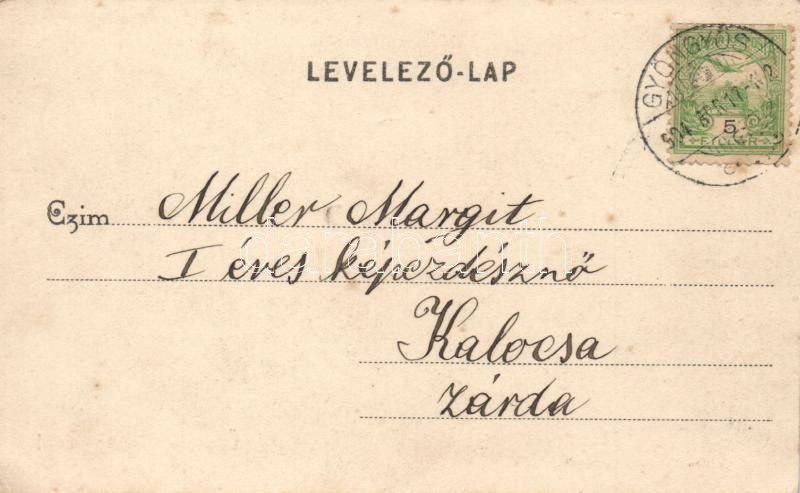 LEVELEZŐ-LAP
GYÖNGYÖS
5
FILLÉR
Czim Miller Margit
I éves képezdésznő
Kalocsa
zárda